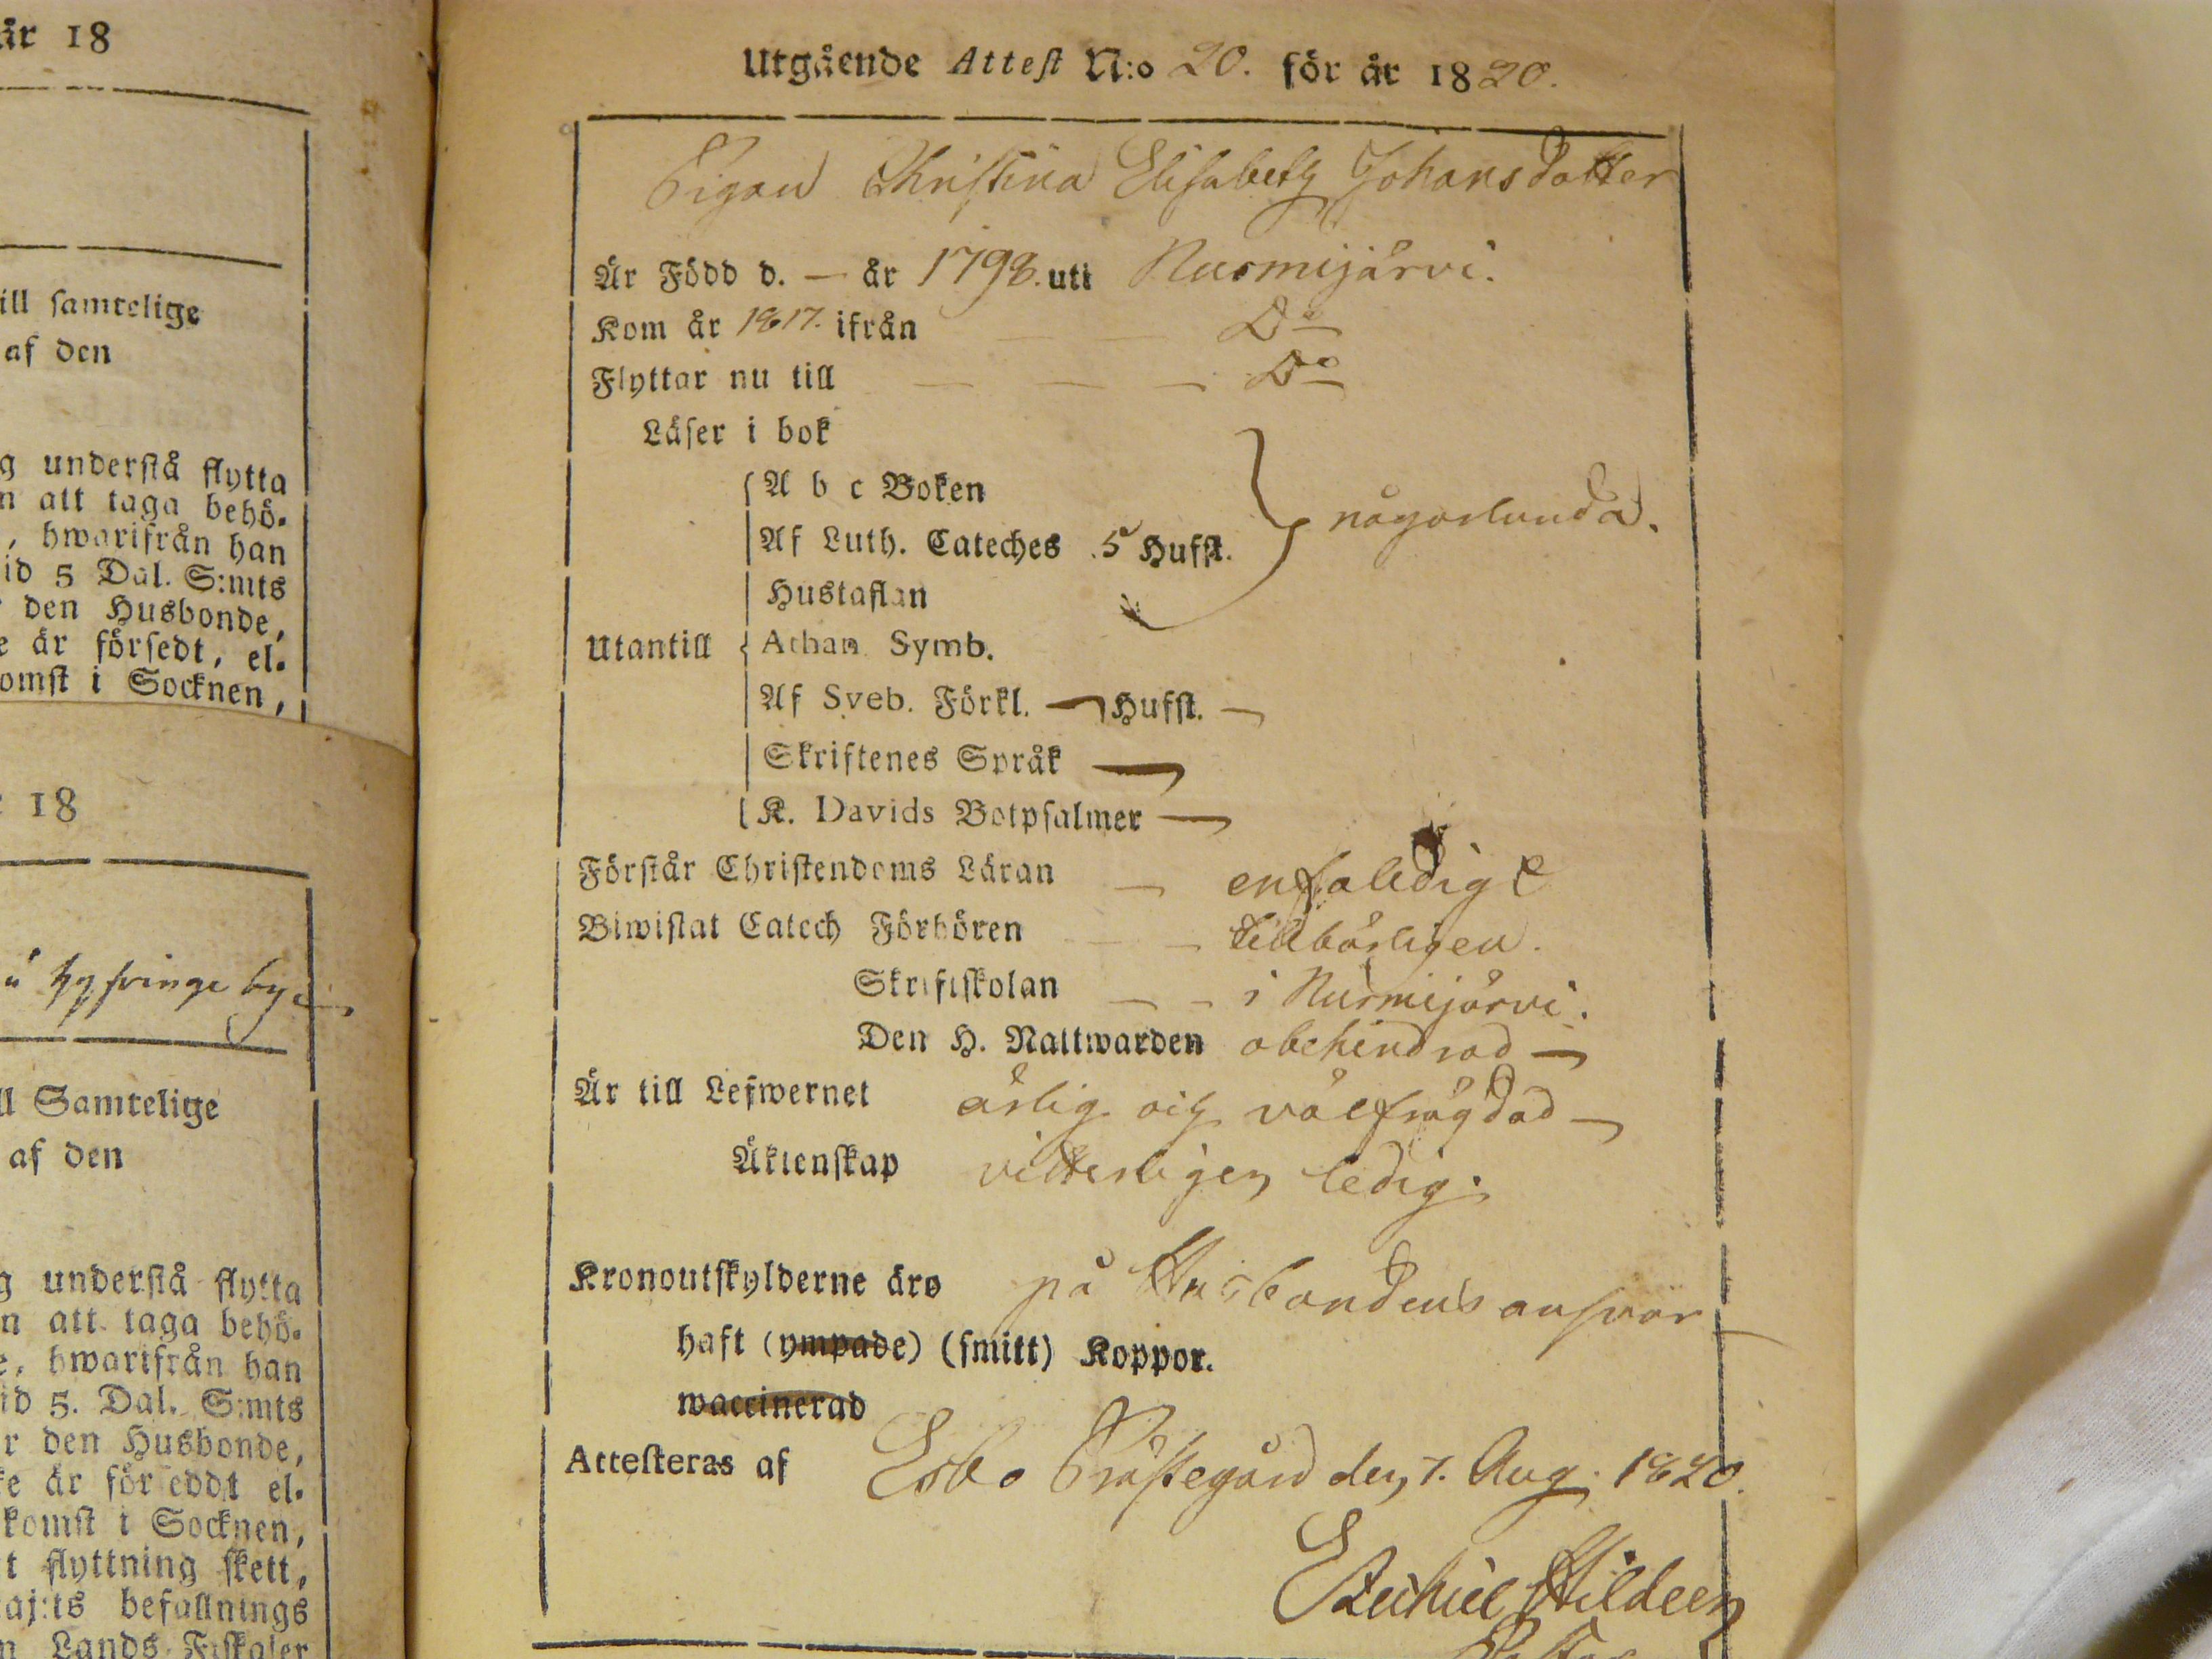 är 18
ill samtelige
af den
g understå flytta
n att taga behö.
, hwarifrån han
id 5 Dal. S:mts
den Husbonde,
e är försedt, el.
omst i Socknen,
18
by
ll Samtelige
af den
g understå flytta
n att taga behö.
e, hwarifrån han
id 5. Dal. S:mts
r den Husbonde,
e är förseddt el.
komst i Socknen,
t flyttning skett,
aj:ts befallnings
n Lands Fiskaler
Utgående Attest N:o 20. för år 1820.
Pigan Christina Elisabeth Johansdotter
Är Född d. — år 1798. uti Nurmijärvi.
Kom år 1817. ifrån — — Do
Flyttar nu till — — — Do
Läser i bok
A b c Boken
Af Luth. Cateches 5 Hufst. någorlunda.
Hustaflan
Utantill Athan. Symb.
Af Sveb. Förkl. — Hufst. —
Skriftenes Språk —
K. Davids Botpsalmer —
Förstår Christendoms Läran — enfaldigt
Biwistat Catech Förhören — — tillbörligen.
Skriftskolan — — i Nurmijärvi.
Den H. Nattwarden obehindrad —
Är till Lefwernet ärlig och välfrägdad —
Äktenskap vitterligen ledig.
Kronoutskylderne äro på Husbondens ansvar —
haft (ympade) (smitt) Koppor.
waccinerad
Attesteras af Esbo Prästegård den 7. Aug. 1820.
Ezechiel Hildeen
Pastor